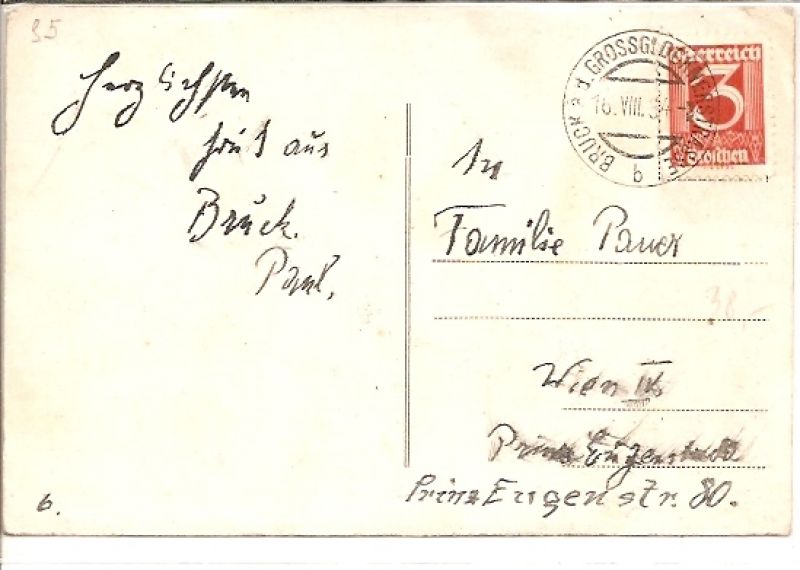 35
Herzlichsten
Gruß aus
Bruck.
Paul.
6.
BRUCK a. d. GROSSGLOCKNERSTRASSE
16. VIII. 34
b
Österreich
3
Groschen
An
Familie Pauer
38,-
Wien IV.
Prinz Eugenstraße
Prinz Eugenstr. 80.